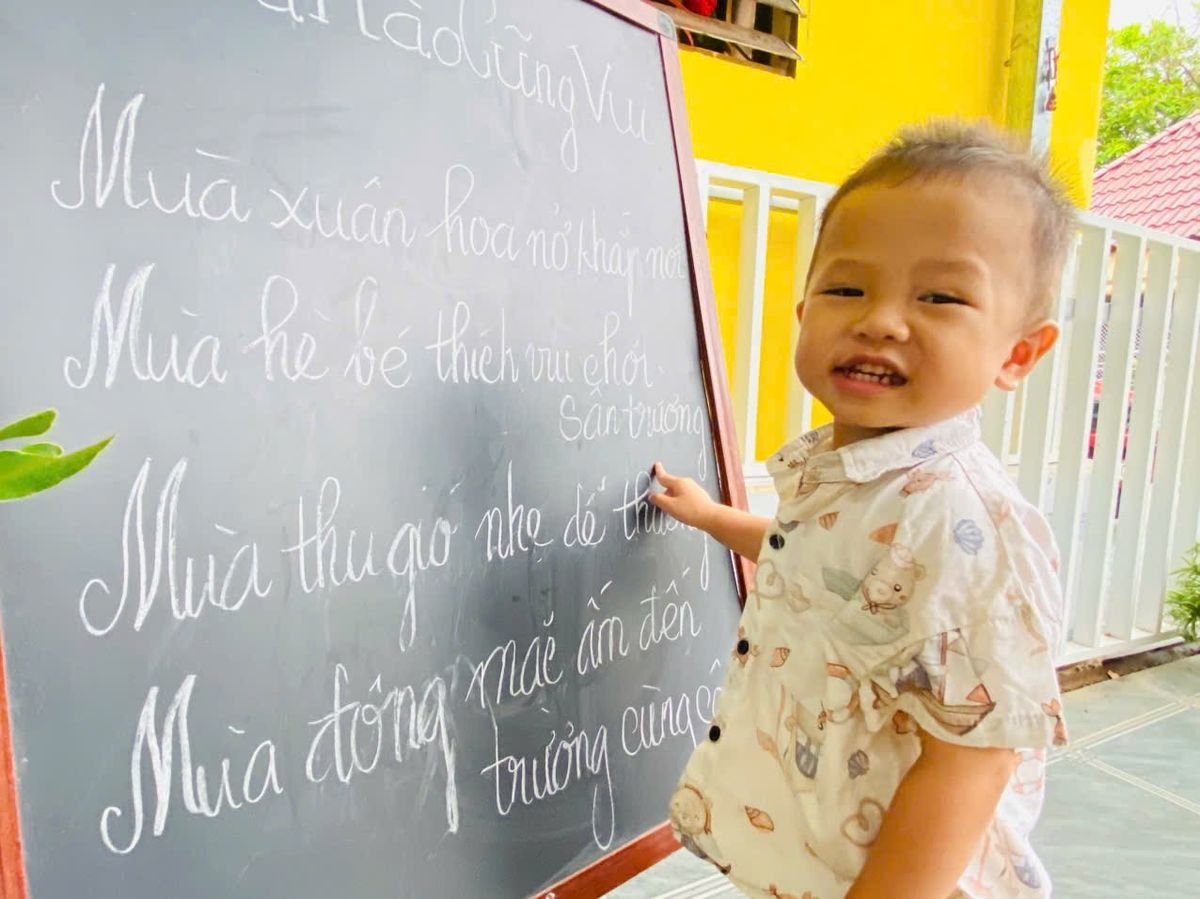 Nào Cũng Vui
Mùa xuân hoa nở khắp nơi
Mùa hè bé thích vui chơi
sân trường
Mùa thu gió nhẹ dễ thương
Mùa đông mặc ấm đến
trường cùng cô